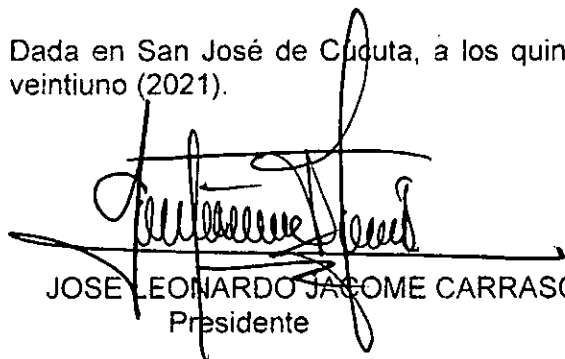 Dada en San José de Cúcuta, a los quin
veintiuno (2021).
JOSE LEONARDO JACOME CARRASC
Presidente